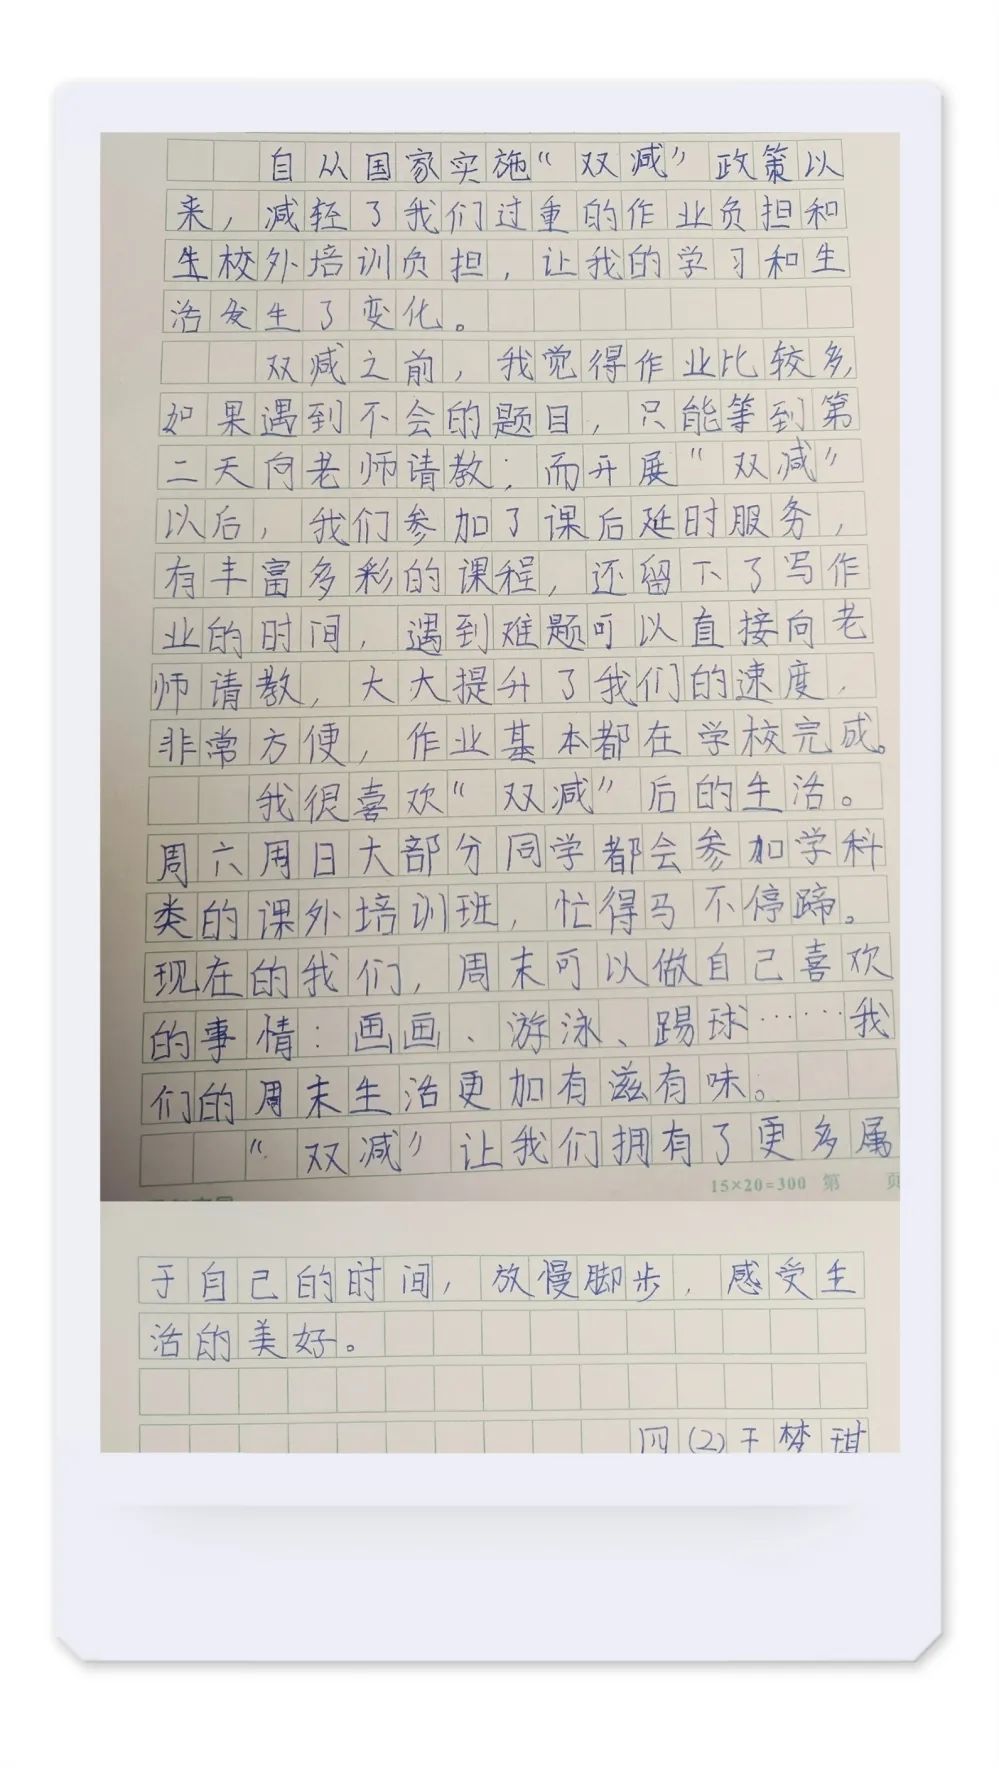 自从国家实施“双减”政策以
来，减轻了我们过重的作业负担和
生校外培训负担，让我的学习和生
活发生了变化。
双减之前，我觉得作业比较多，
如果遇到不会的题目，只能等到第
二天向老师请教；而开展“双减”
以后，我们参加了课后延时服务，
有丰富多彩的课程，还留下了写作
业的时间，遇到难题可以直接向老
师请教，大大提升了我们的速度，
非常方便，作业基本都在学校完成。
我很喜欢“双减”后的生活。
周六周日大部分同学都会参加学科
类的课外培训班，忙得马不停蹄。
现在的我们，周末可以做自己喜欢
的事情：画画、游泳、踢球……我
们的周末生活更加有滋有味。
“双减”让我们拥有了更多属
15×20=300 第 页
于自己的时间，放慢脚步，感受生
活的美好。
四(2)于梦琪